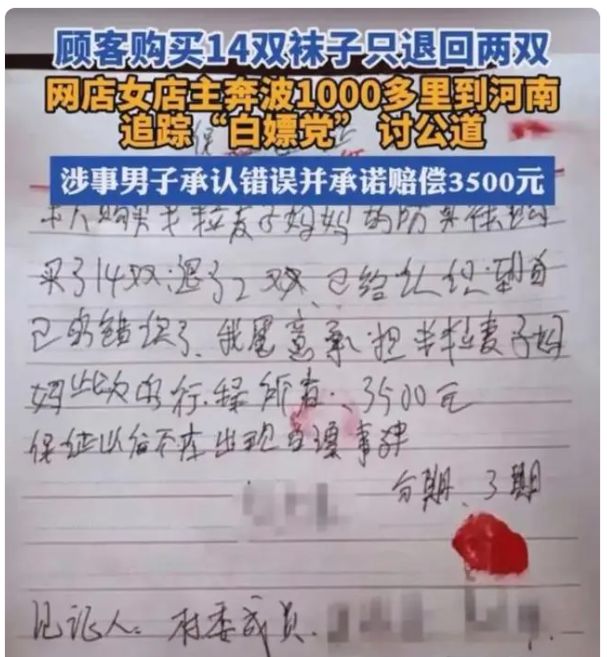 顾客购买14双袜子只退回两双
网店女店主奔波1000多里到河南
追踪“白嫖党” 讨公道
涉事男子承认错误并承诺赔偿3500元
本人购买半粒麦子妈妈的防臭袜
买了14双.退了2双、已给认识到自
己的错误了、我愿意承担半粒麦子妈
妈此次的行程所有、3500元
保证以后不在出现这种事
分期、3期
见证人：村委成员.